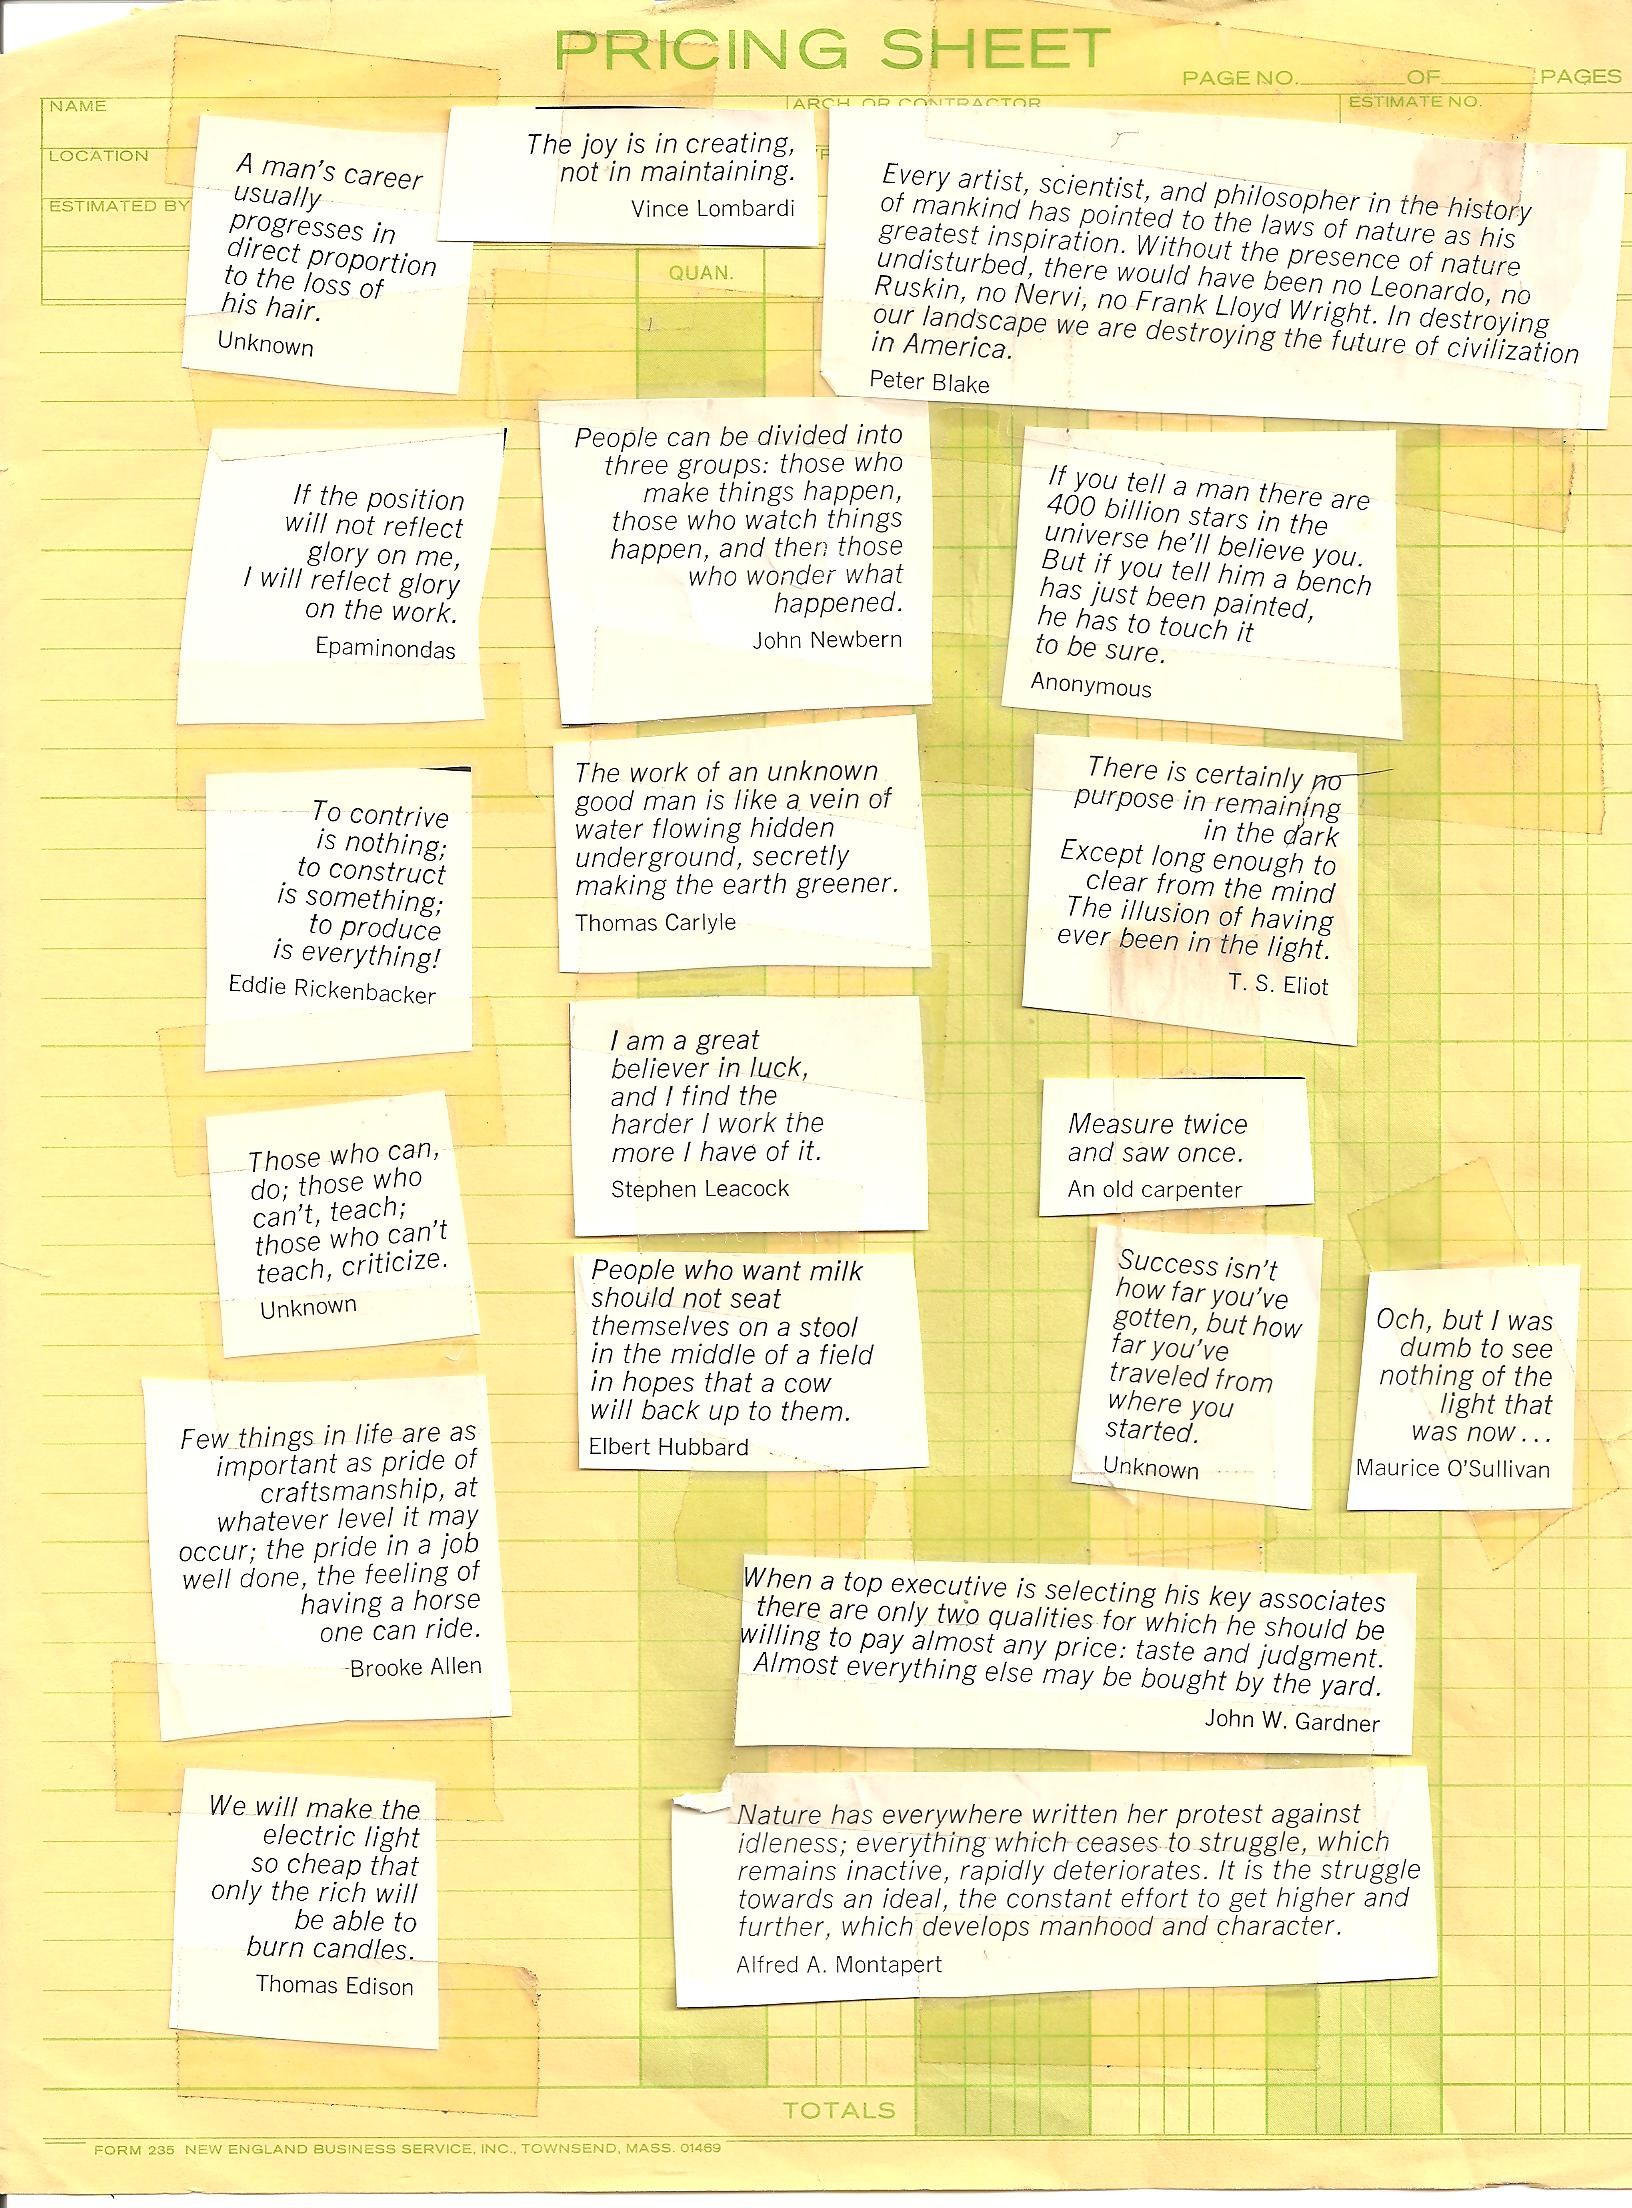 PRICING SHEET
PAGE NO. OF PAGES
NAME
ARCH. OR CONTRACTOR
ESTIMATE NO.
LOCATION
ESTIMATED BY
QUAN.
A man's career
usually
progresses in
direct proportion
to the loss of
his hair.
Unknown
The joy is in creating,
not in maintaining.
Vince Lombardi
Every artist, scientist, and philosopher in the history
of mankind has pointed to the laws of nature as his
greatest inspiration. Without the presence of nature
undisturbed, there would have been no Leonardo, no
Ruskin, no Nervi, no Frank Lloyd Wright. In destroying
our landscape we are destroying the future of civilization
in America.
Peter Blake
If the position
will not reflect
glory on me,
I will reflect glory
on the work.
Epaminondas
People can be divided into
three groups: those who
make things happen,
those who watch things
happen, and then those
who wonder what
happened.
John Newbern
If you tell a man there are
400 billion stars in the
universe he'll believe you.
But if you tell him a bench
has just been painted,
he has to touch it
to be sure.
Anonymous
To contrive
is nothing;
to construct
is something;
to produce
is everything!
Eddie Rickenbacker
The work of an unknown
good man is like a vein of
water flowing hidden
underground, secretly
making the earth greener.
Thomas Carlyle
There is certainly no
purpose in remaining
in the dark
Except long enough to
clear from the mind
The illusion of having
ever been in the light.
T. S. Eliot
I am a great
believer in luck,
and I find the
harder I work the
more I have of it.
Stephen Leacock
Measure twice
and saw once.
An old carpenter
Those who can,
do; those who
can't, teach;
those who can't
teach, criticize.
Unknown
People who want milk
should not seat
themselves on a stool
in the middle of a field
in hopes that a cow
will back up to them.
Elbert Hubbard
Success isn't
how far you've
gotten, but how
far you've
traveled from
where you
started.
Unknown
Och, but I was
dumb to see
nothing of the
light that
was now...
Maurice O'Sullivan
Few things in life are as
important as pride of
craftsmanship, at
whatever level it may
occur; the pride in a job
well done, the feeling of
having a horse
one can ride.
Brooke Allen
When a top executive is selecting his key associates
there are only two qualities for which he should be
willing to pay almost any price: taste and judgment.
Almost everything else may be bought by the yard.
John W. Gardner
We will make the
electric light
so cheap that
only the rich will
be able to
burn candles.
Thomas Edison
Nature has everywhere written her protest against
idleness; everything which ceases to struggle, which
remains inactive, rapidly deteriorates. It is the struggle
towards an ideal, the constant effort to get higher and
further, which develops manhood and character.
Alfred A. Montapert
TOTALS
FORM 235 NEW ENGLAND BUSINESS SERVICE, INC., TOWNSEND, MASS. 01469